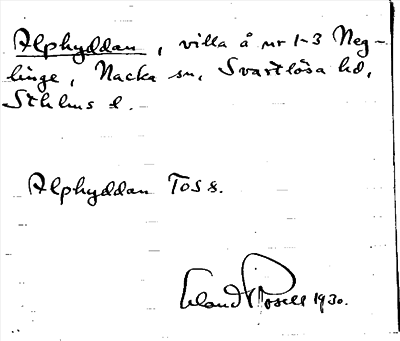 Alphyddan, villa å nr 1-3 Neg-
linge, Nacka sn, Svartlösa hd,
Sthlms l.
Alphyddan TOS 8.
Erland Rosell 1930.